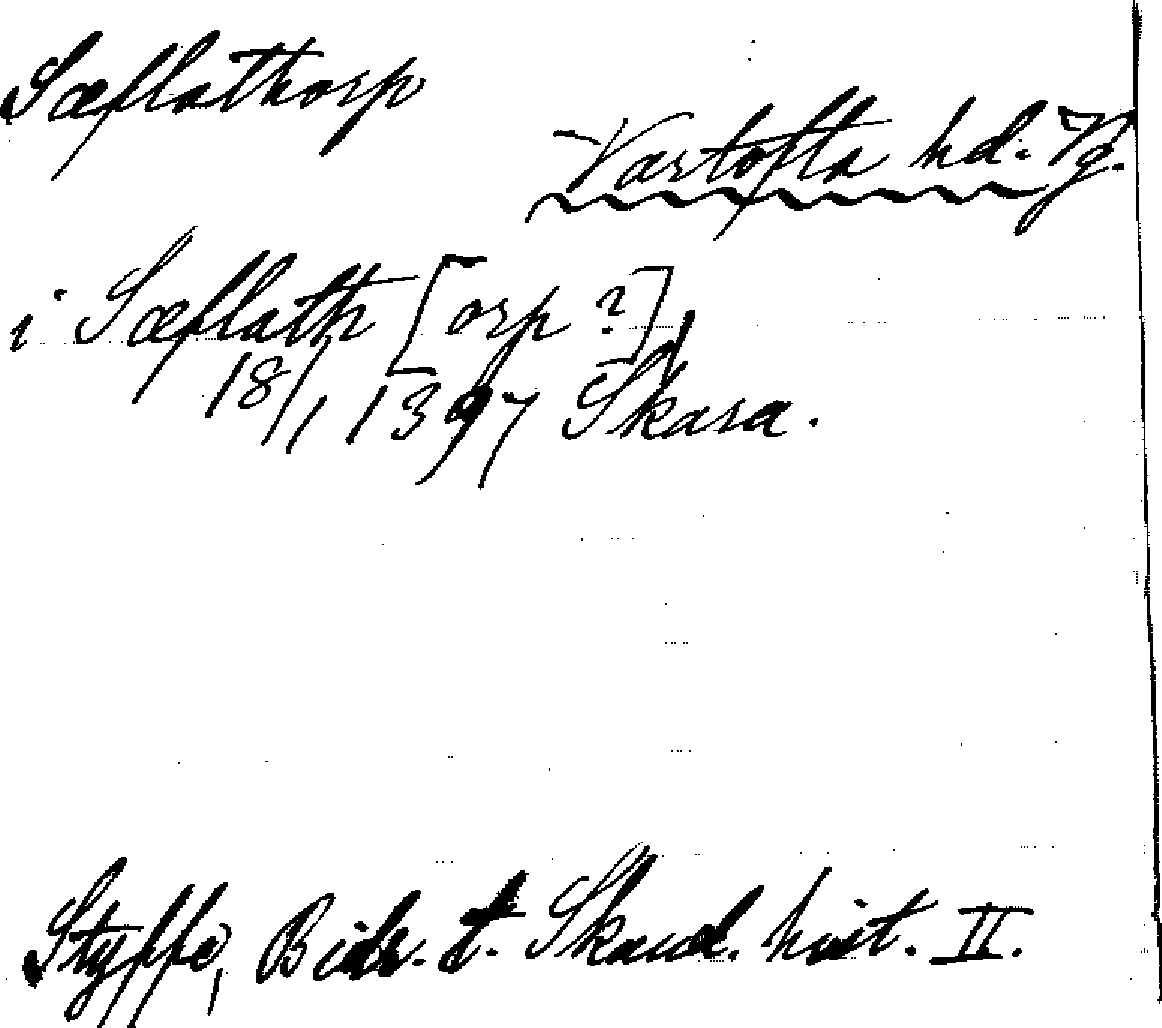 Sæflathorp
Vartofta hd. Vg.
i Sæflath [orp ?]
18/1 1397 Skara.
Styffe, Bidr. t. Skand. hist. II.